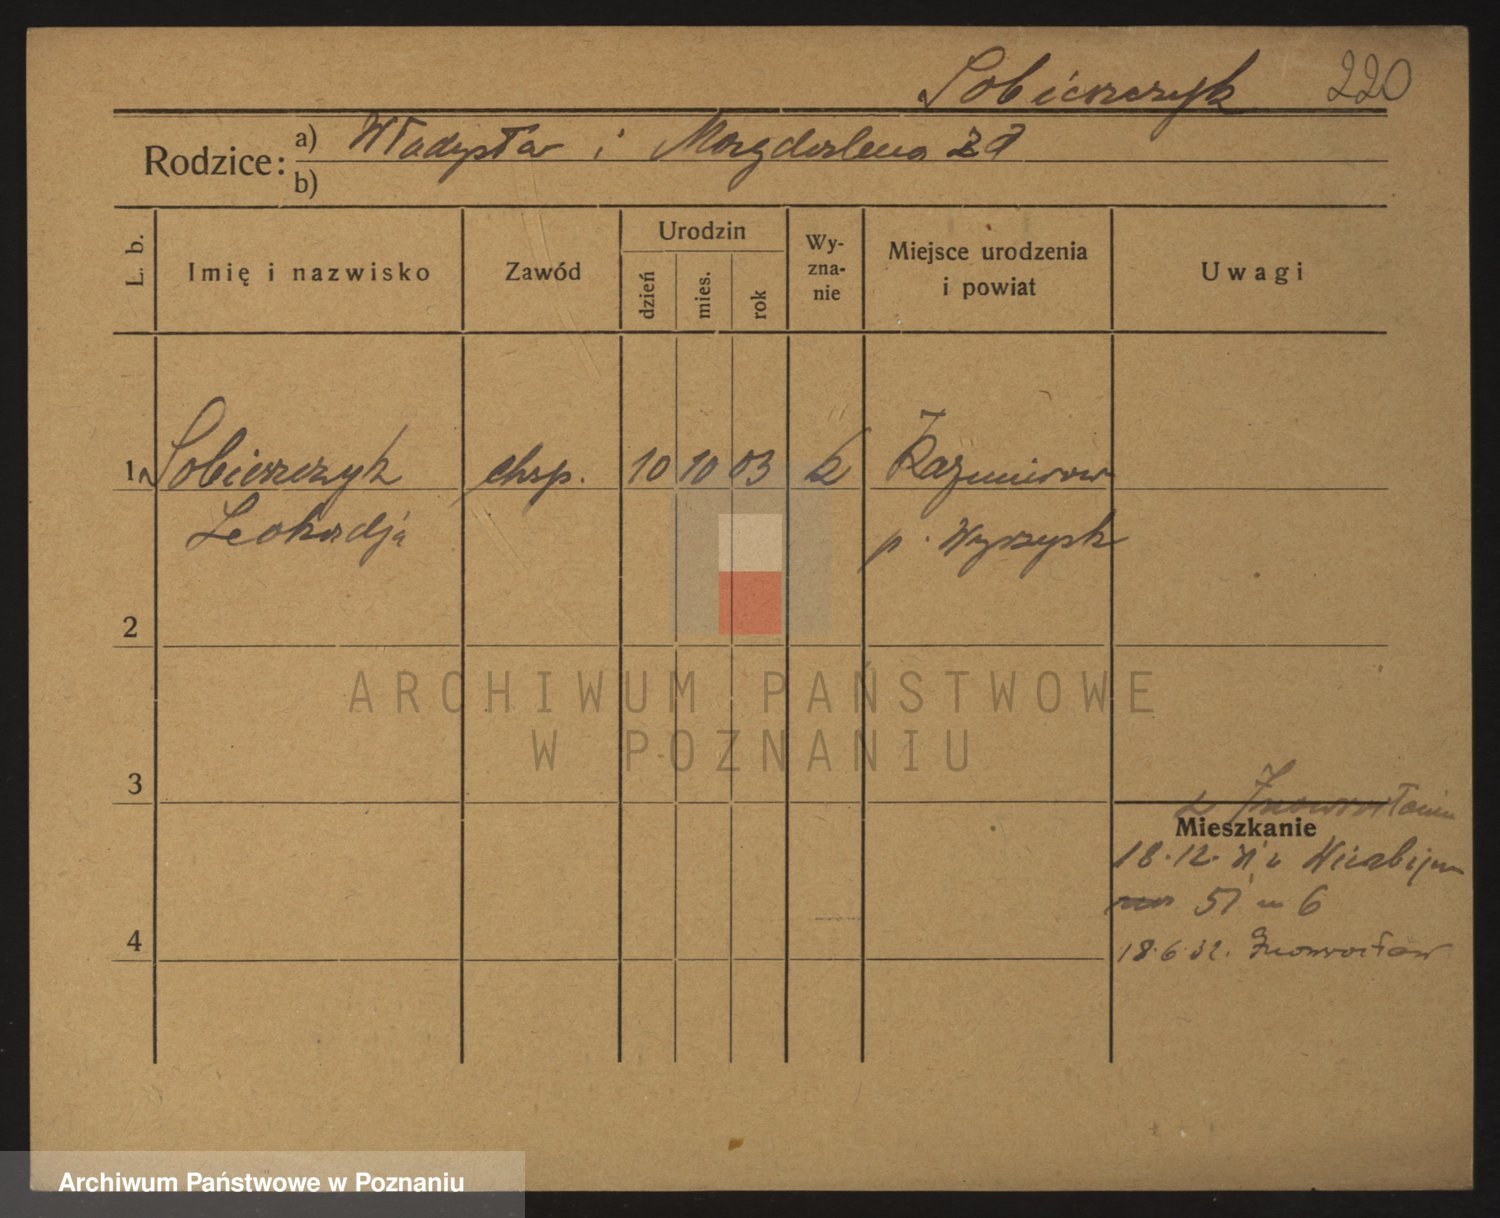 Sobierczyk 220
Rodzice: a) Władysław i Magdalena
b)
L. b.
Imię i nazwisko
Zawód
Urodzin
dzień
mies.
rok
Wy-
zna-
nie
Miejsce urodzenia
i powiat
Uwagi
1 Sobierczyk chsp. 10 10 03 k Kazmierowo
Leokadja p. Wyrzysk
2
ARCHIWUM PAŃSTWOWE
W POZNANIU
3
z Inowrocławia
Mieszkanie
18.12. 51 m 6
4
18.6.32. Inowrocław
Archiwum Państwowe w Poznaniu